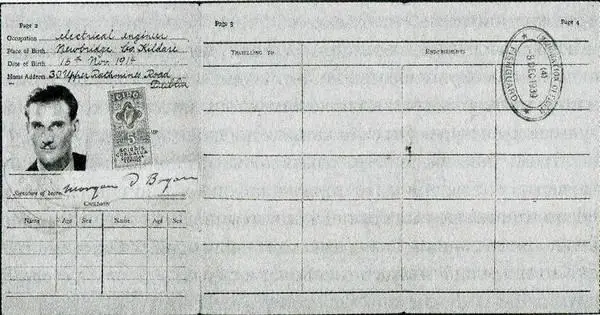 Page 2
Occupation electrical engineer
Place of Birth Newbridge Co. Kildare
Date of Birth 16th Nov. 1914
Home Address 30 Upper Rathmines Road
Dublin
EIRE
5
Signature of bearer Morgan D Bogan
CHILDREN
Name Age Sex Name Age Sex
Page 3
TRAVELLING TO
Page 4
ENDORSEMENTS
IMMIGRATION OFFICER
(4)
8 DEC 1939
FISHGUARD